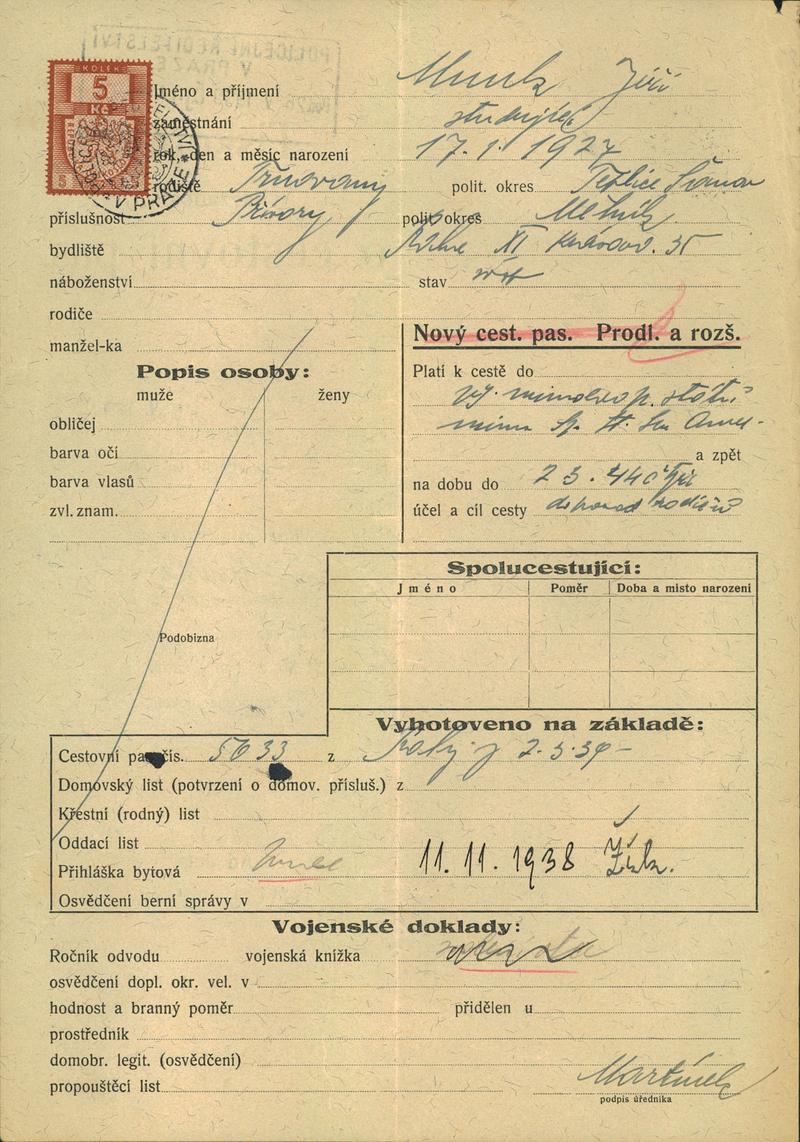 POLICEJNÍ ŘEDITELSTVÍ
V PRAZE
KOLEK
5
Kč
V PRAZE
Jméno a příjmení Munk Jiří
zaměstnání studující
rok, den a měsíc narození 17. 1. 1922
rodiště Trnovany polit. okres Teplice Šanov
příslušnost Přívory polit. okres Mělník
bydliště XI 35
náboženství stav
rodiče
manžel-ka
Popis osoby:
muže ženy
obličej
barva očí
barva vlasů
zvl. znam.
Nový cest. pas. Prodl. a rozš.
Platí k cestě do
mimoevrop. státu
mimo Sp. st. Sev. Amer-
a zpět
na dobu do 2 3. 440
účel a cíl cesty doprovod rodičů
Podobizna
Spolucestující:
Jméno Poměr Doba a místo narození
Vyhotoveno na základě:
Cestovní pas čís. 5033 z 2. 3. 39 -
Domovský list (potvrzení o domov. přísluš.) z
Křestní (rodný) list
Oddací list
Přihláška bytová 11. 11. 1938 Žiž.
Osvědčení berní správy v
Vojenské doklady:
Ročník odvodu vojenská knížka
osvědčení dopl. okr. vel. v
hodnost a branný poměr přidělen u
prostředník
domobr. legit. (osvědčení)
propouštěcí list Martínek
podpis úředníka